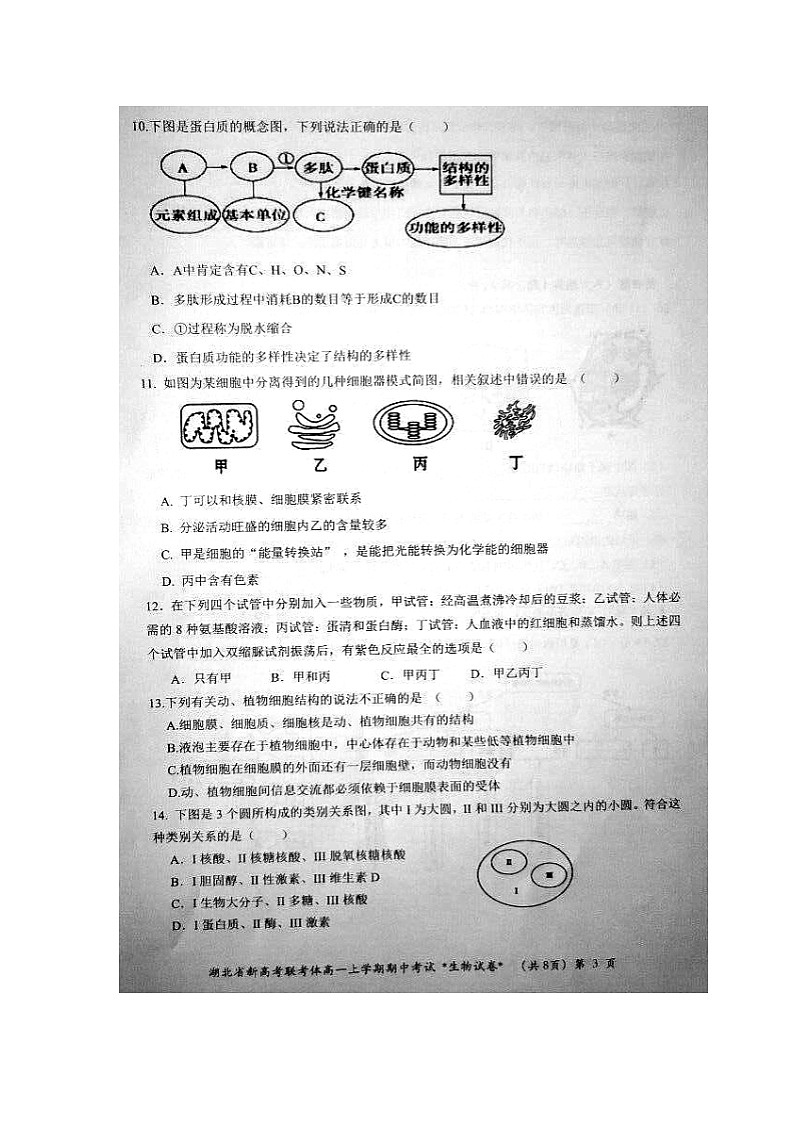 10.下图是蛋白质的概念图，下列说法正确的是（　　）
A B ① 多肽 蛋白质 结构的多样性
化学键名称
元素组成 基本单位 C 功能的多样性
A．A中肯定含有C、H、O、N、S
B．多肽形成过程中消耗B的数目等于形成C的数目
C．①过程称为脱水缩合
D．蛋白质功能的多样性决定了结构的多样性
11. 如图为某细胞中分离得到的几种细胞器模式简图，相关叙述中错误的是 （　　）
甲 乙 丙 丁
A. 丁可以和核膜、细胞膜紧密联系
B. 分泌活动旺盛的细胞内乙的含量较多
C. 甲是细胞的“能量转换站” ，是能把光能转换为化学能的细胞器
D. 丙中含有色素
12．在下列四个试管中分别加入一些物质，甲试管：经高温煮沸冷却后的豆浆；乙试管：人体必
需的 8 种氨基酸溶液；丙试管：蛋清和蛋白酶；丁试管：人血液中的红细胞和蒸馏水。则上述四
个试管中加入双缩脲试剂振荡后，有紫色反应最全的选项是（　　）
A．只有甲 B．甲和丙 C．甲丙丁 D．甲乙丙丁
13.下列有关动、植物细胞结构的说法不正确的是 （　　）
A.细胞膜、细胞质、细胞核是动、植物细胞共有的结构
B.液泡主要存在于植物细胞中，中心体存在于动物和某些低等植物细胞中
C.植物细胞在细胞膜的外面还有一层细胞壁，而动物细胞没有
D.动、植物细胞间信息交流都必须依赖于细胞膜表面的受体
14. 下图是 3 个圆所构成的类别关系图，其中 I 为大圆，II 和 III 分别为大圆之内的小圆。符合这
种类别关系的是（　　）
A．I 核酸、II 核糖核酸、III 脱氧核糖核酸
B．I 胆固醇、II 性激素、III 维生素 D
C．I 生物大分子、II 多糖、III 核酸
D．I 蛋白质、II 酶、III 激素
II III I
湖北省新高考联考体高一上学期期中考试 *生物试卷* （共 8页）第 3 页